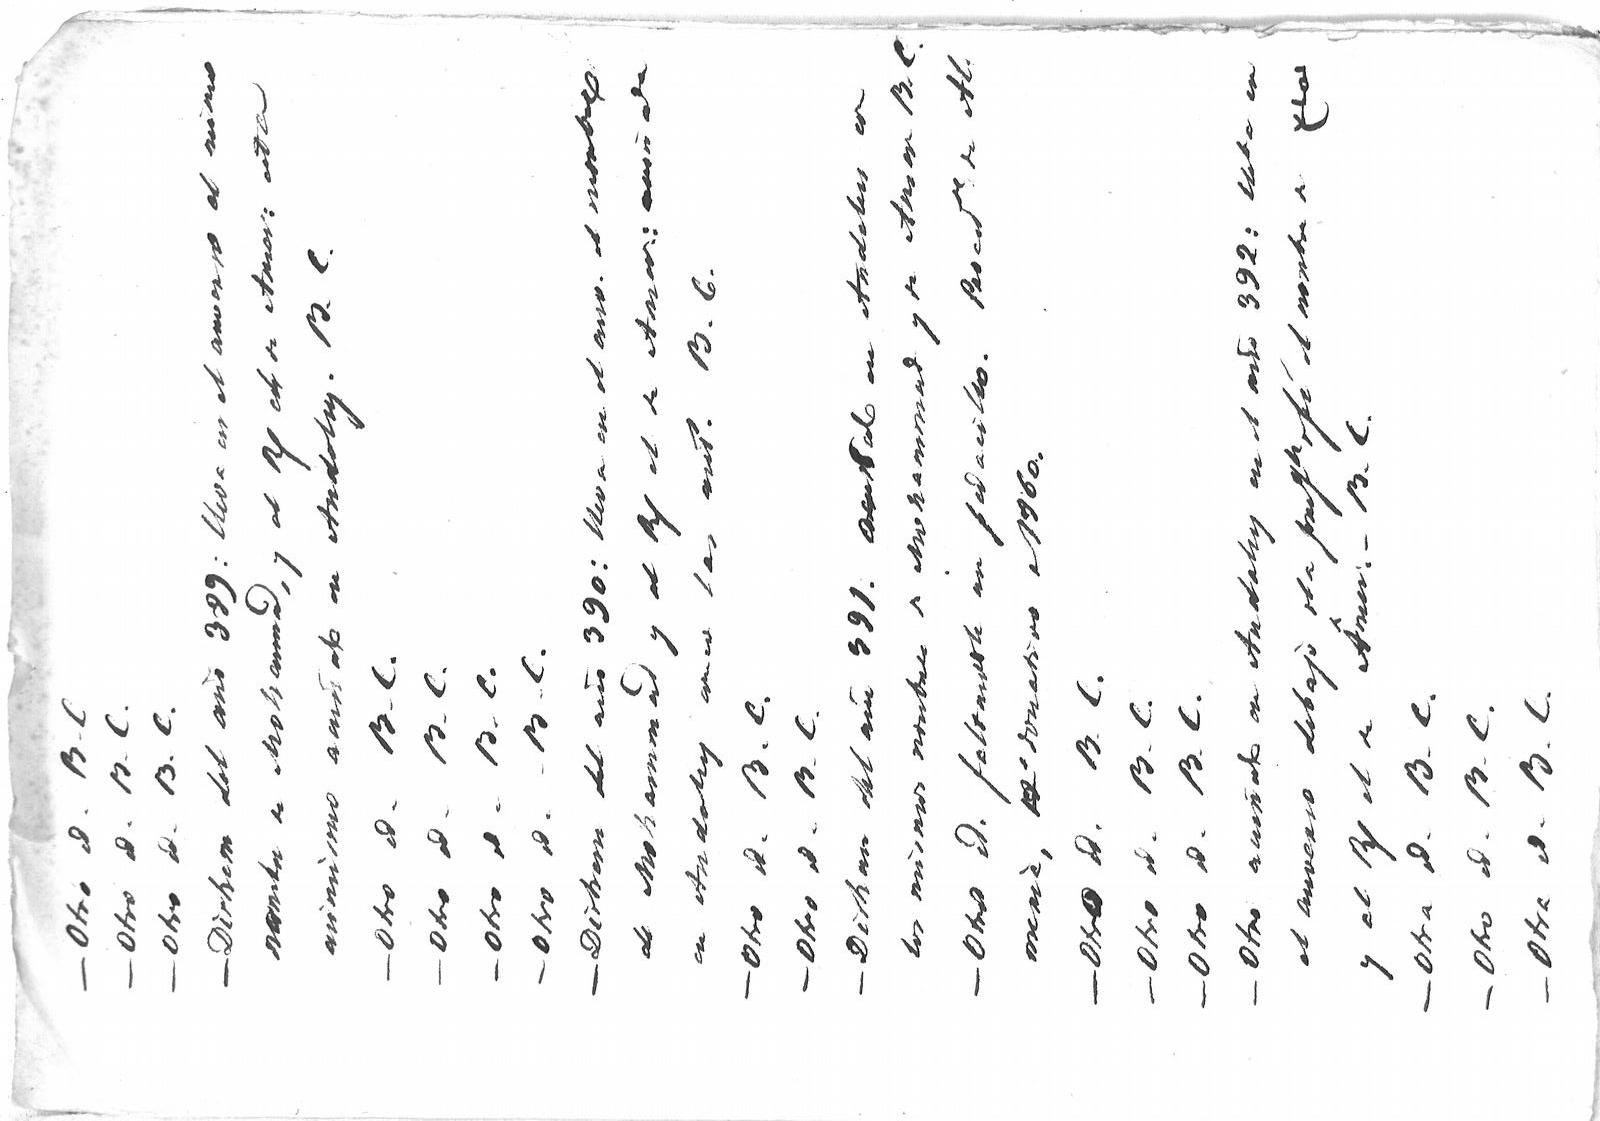 — Otro id. B. C
— Otro id. B. C.
— Otro id. B. C.
— Dirhem del año 389: lleva en el anverso el mismo
nombre de Mohammad, y el Rf el de Amer: está
asimismo acuñado en Andalus. B. C.
— Otro id. B. C.
— Otro id. B. C.
— Otro id. B. C.
— Otro id. B. C.
— Dirhem del año 390: lleva en el anv. el nombre
de Mohammad y el Rf el de Amer: acuñada
en Andalus como las ant.s B. C.
— Otro id. B. C.
— Otro id. B. C.
— Dirhem del año 391. acuñado en Andalus con
los mismos nombres de Mohammad y de Amer B. C.
— Otro id. falsamente en pedacitos. de Al.
meria, donativo 1960.
— Otro id. B. C.
— Otro id. B. C.
— Otro id. B. C.
— Otro acuñado en Andalus en el año 392: lleva en
el anverso debajo de la el nombre de
y el Rf el de Amer. – B. C.
— Otra id. B. C.
— Otro id. B. C.
— Otra id. B. C.